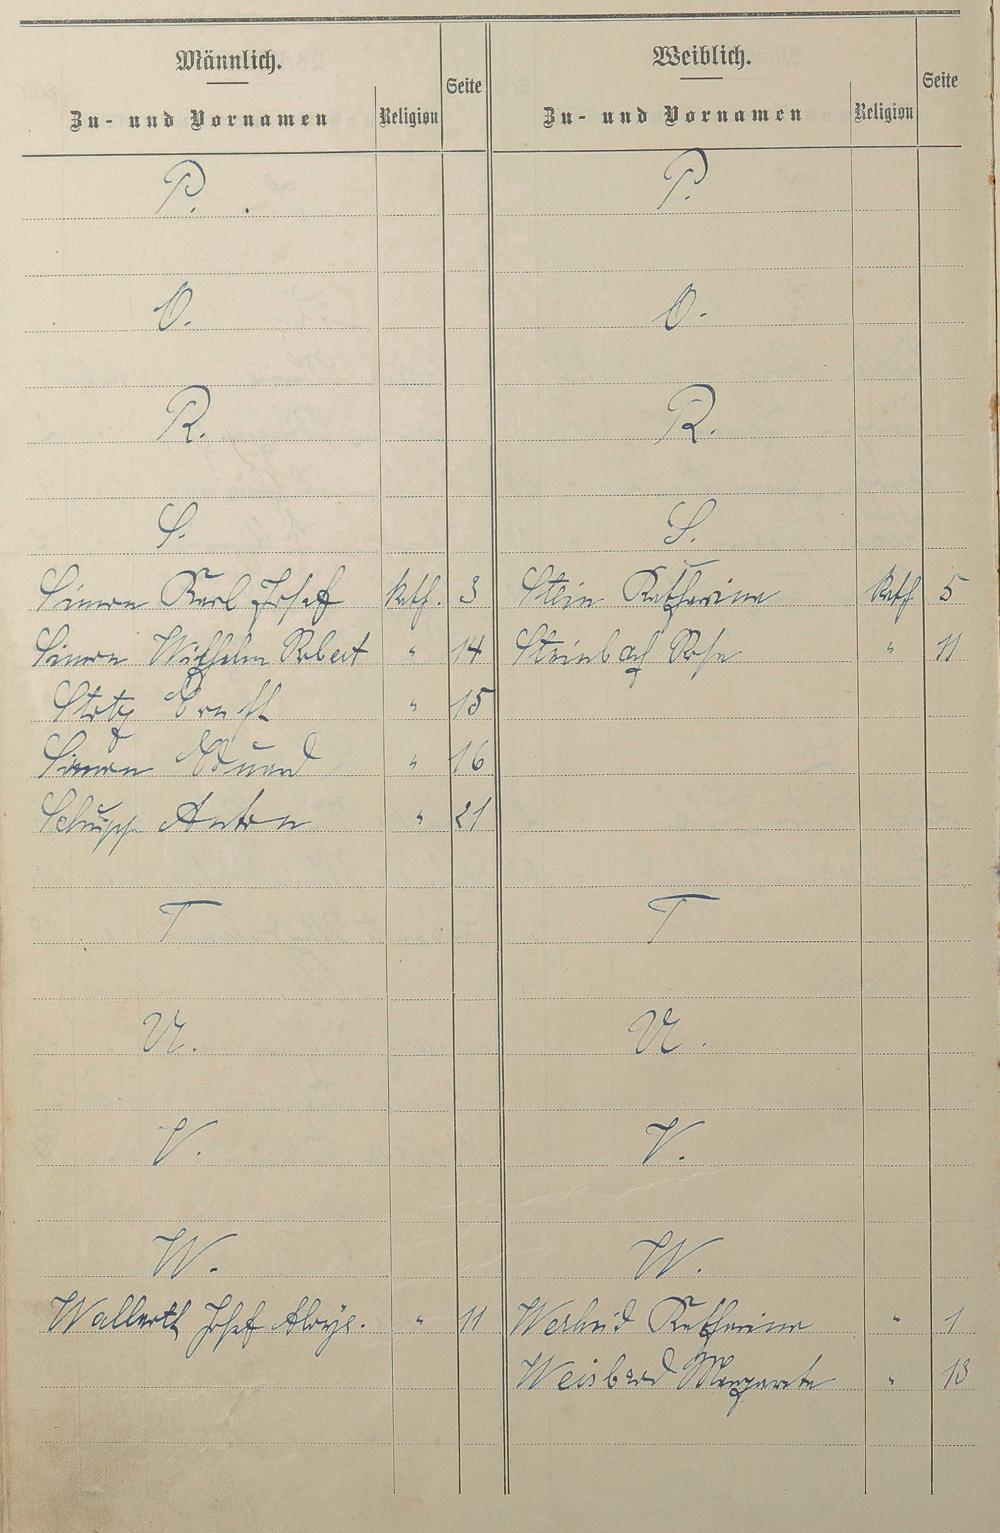 Männlich.
Zu- und Vornamen
Religion
Seite
Weiblich.
Zu- und Vornamen
Religion
Seite
P. P.
O. O.
R. R.
S. S.
Simon Karl Josef Kath. 3 Stein Katharina Kath 5
Simon Wilhelm Robert " 14 Steinbach Rosa " 11
Stotz Ernst " 15
Simon Eduard " 16
Schupp Anton " 21
T T
U. U.
V. V.
W. W.
Wallerth Josef Aloys. " 11 Katharina " 1
Margareta " 13